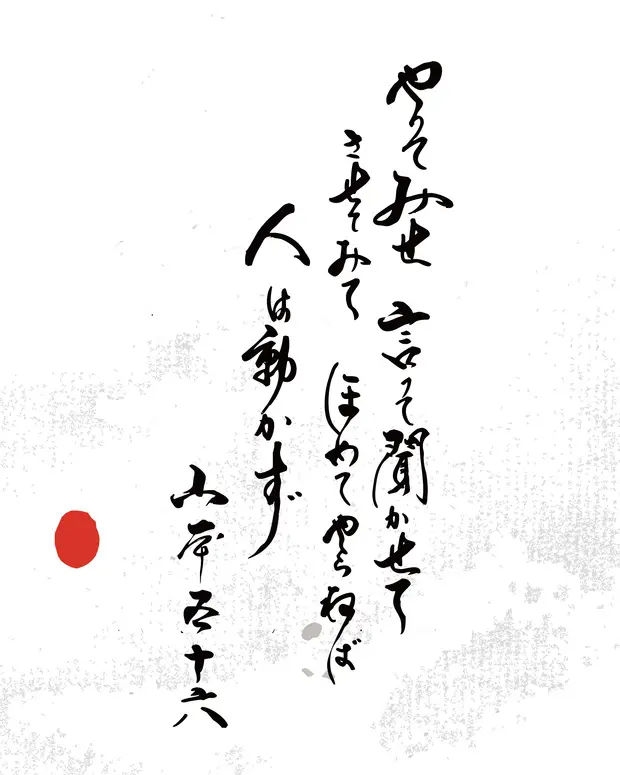 やつてみせ 言つて聞かせて
させてみて ほめてやらねば
人は動かず
山本五十六